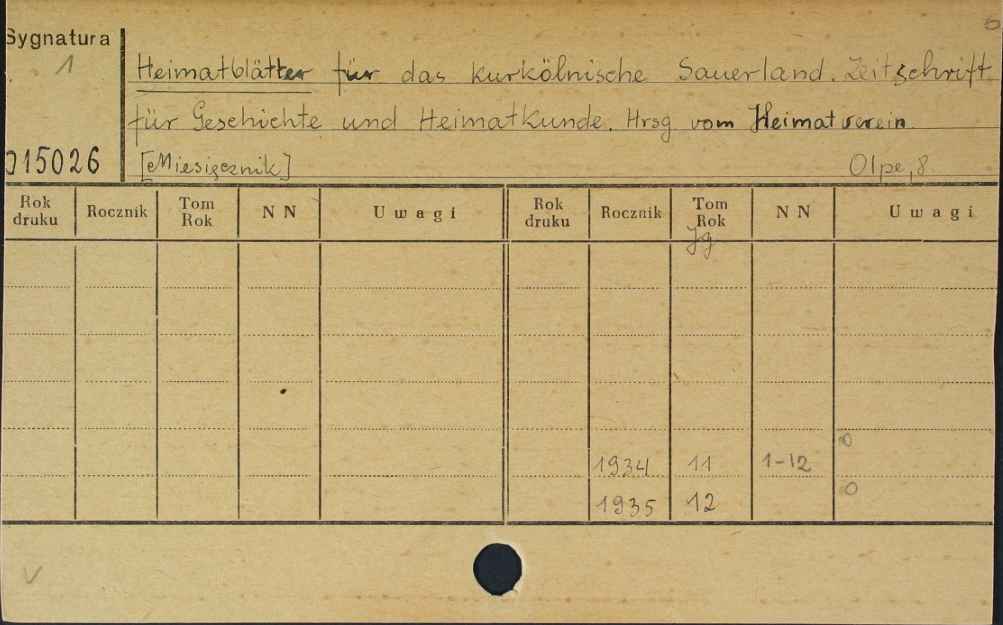 6
Sygnatura
1
Heimatblätter für das kurkölnische Sauerland. Zeitschrift
für Geschichte und Heimatkunde. Hrsg. vom Heimatverein
015026 [Miesięcznik] Olpe, 8
Rok druku Rocznik Tom Rok N N Uwagi Rok druku Rocznik Tom Rok N N Uwagi
Jg
1934 11 1-12 0
1935 12 0
V